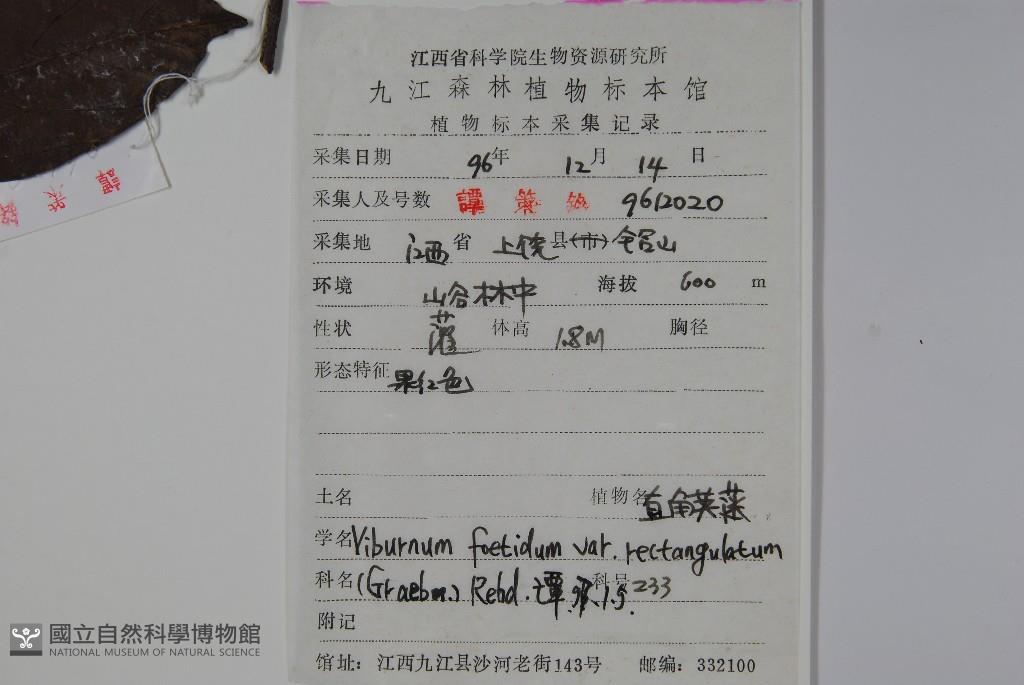 江西省科学院生物资源研究所
九江森林植物标本馆
植物标本采集记录
采集日期 96年 12月 14日
采集人及号数 譚策铭 9612020
采集地 江西省 上饶县(市) 铅山
环境 山谷林中 海拔 600 m
性状 灌 体高 1.8M 胸径
形态特征 果红色
土名 植物名 直角荚蒾
学名 Viburnum foetidum var. rectangulatum
科名 (Graebn.) Rehd. 谭策铭 科号 233
附记
馆址: 江西九江县沙河老街143号 邮编: 332100
國立自然科學博物館
NATIONAL MUSEUM OF NATURAL SCIENCE